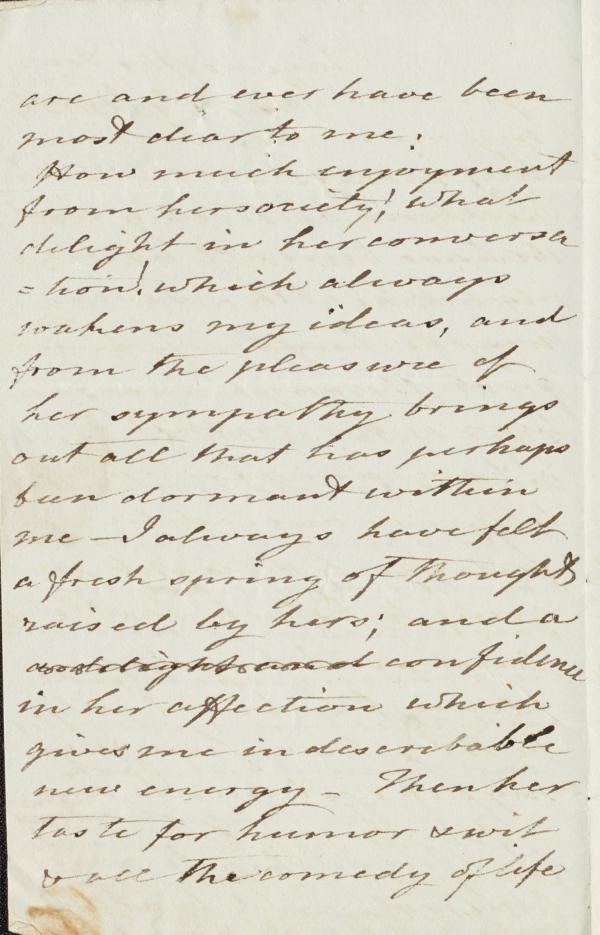 are and ever have been
most dear to me.
How much enjoyment
from her society! what
delight in her conversa
=tion! which always
wakens my ideas, and
from the pleasure of
her sympathy brings
out all that has perhaps
been dormant within
me – I always have felt
a fresh spring of thought
raised by hers; and a
confidence
in her affection which
gives me indescribable
new energy – Then her
taste for humor & wit
& all the comedy of life